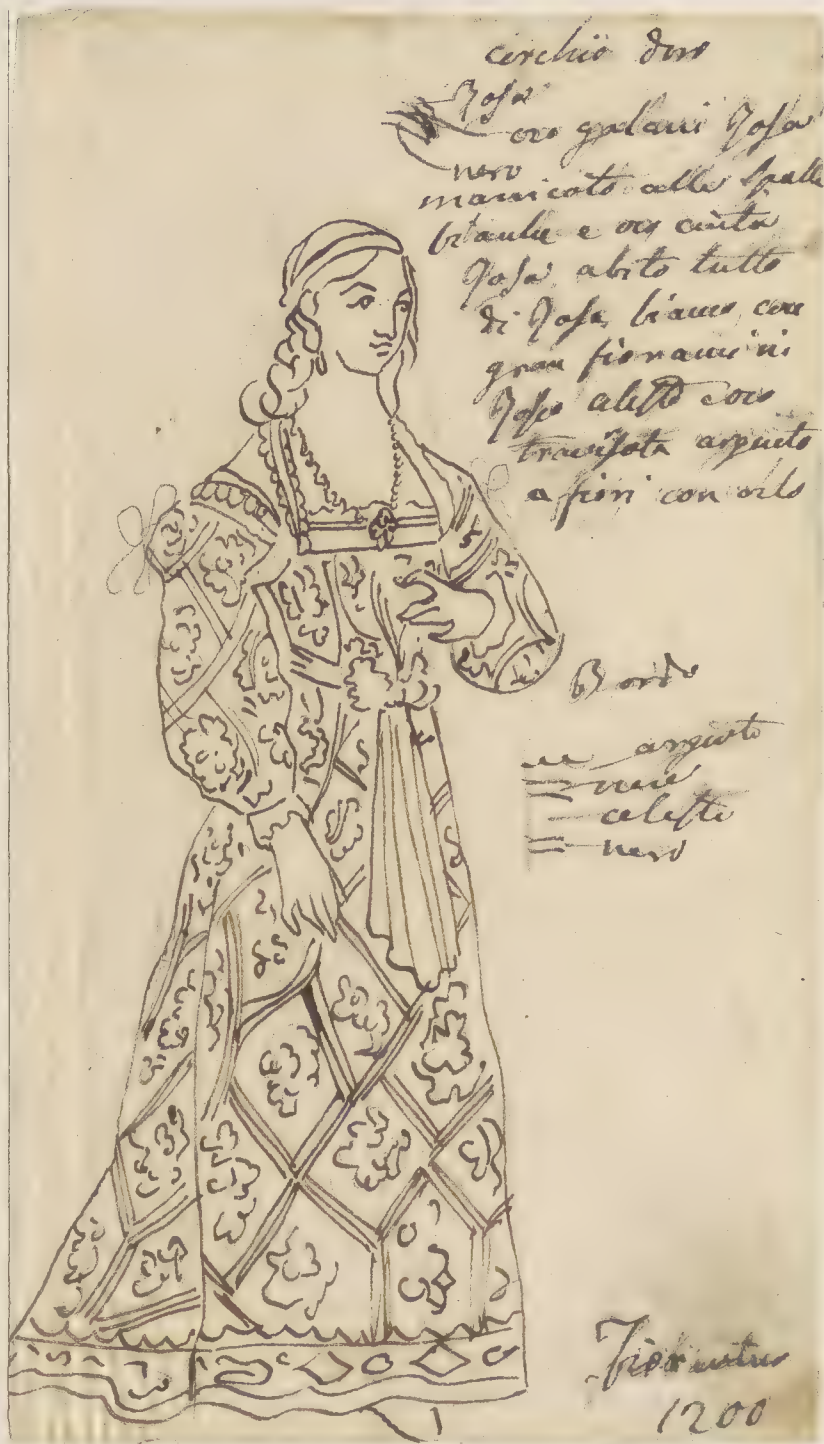 cerchio doro
Rosa
oro galani Rosa
nero
manicoto alle spalle
bianche e oro cinta
Rosa abito tutto
di Rosa bianco con
gran fiorami ni
Rosa celeste con
argento
a fiori con orlo
Bordo
argento
nero
celeste
nero
1200